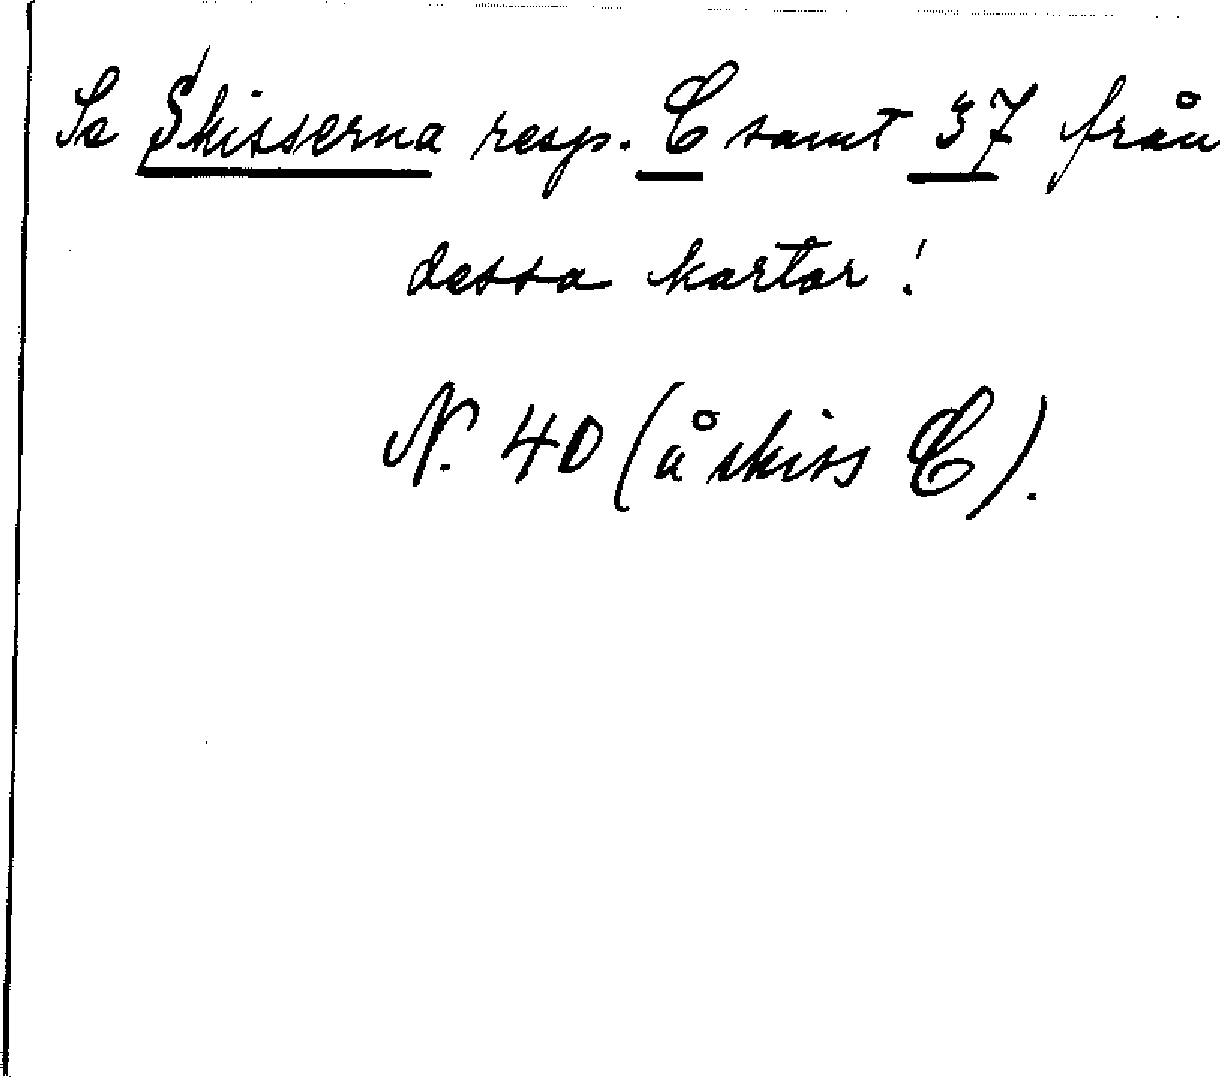 Se Skisserna resp. C samt 37 från
dessa kartor!
N. 40 (å skiss C).